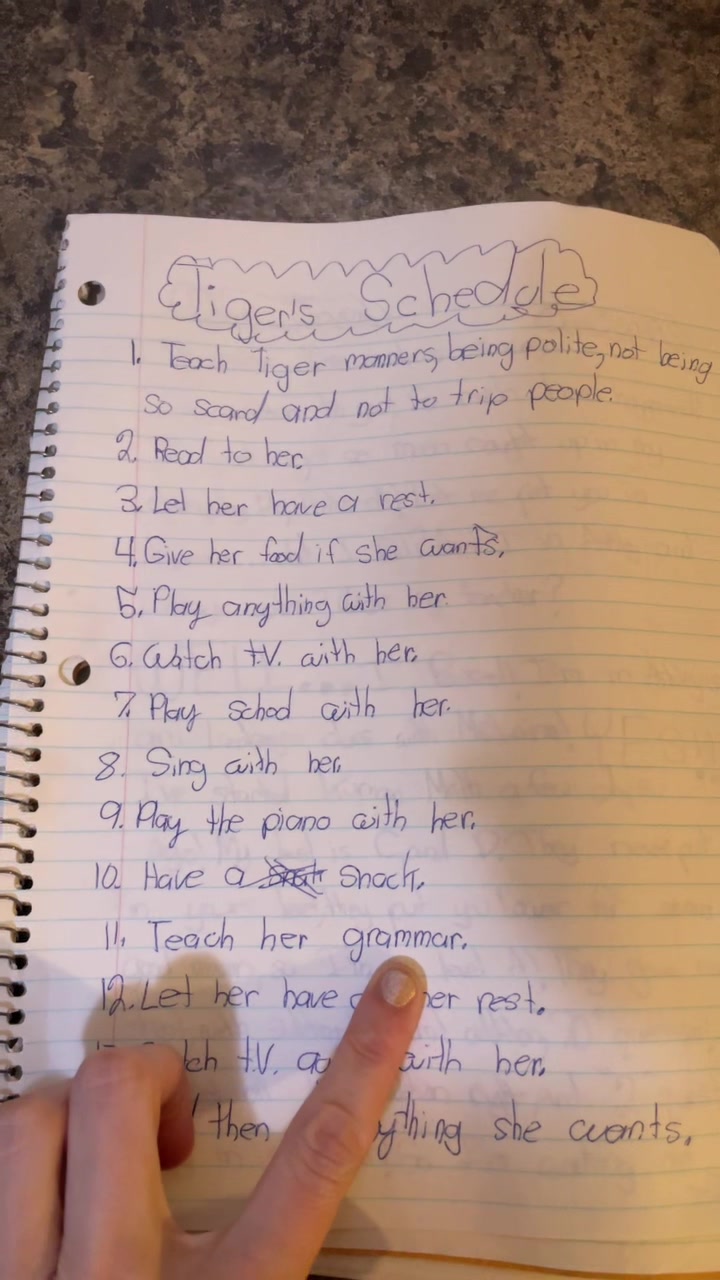 Tiger's Schedule
1. Teach Tiger manners, being polite, not being
so scard and not to trip people.
2. Read to her.
3. Let her have a rest.
4. Give her food if she wants.
5. Play anything with her.
6. Watch t.V. with her.
7. Play school with her.
8. Sing with her.
9. Play the piano with her.
10. Have a snack.
11. Teach her grammar.
12. Let her have her rest.
t.V. with her.
then she wants.